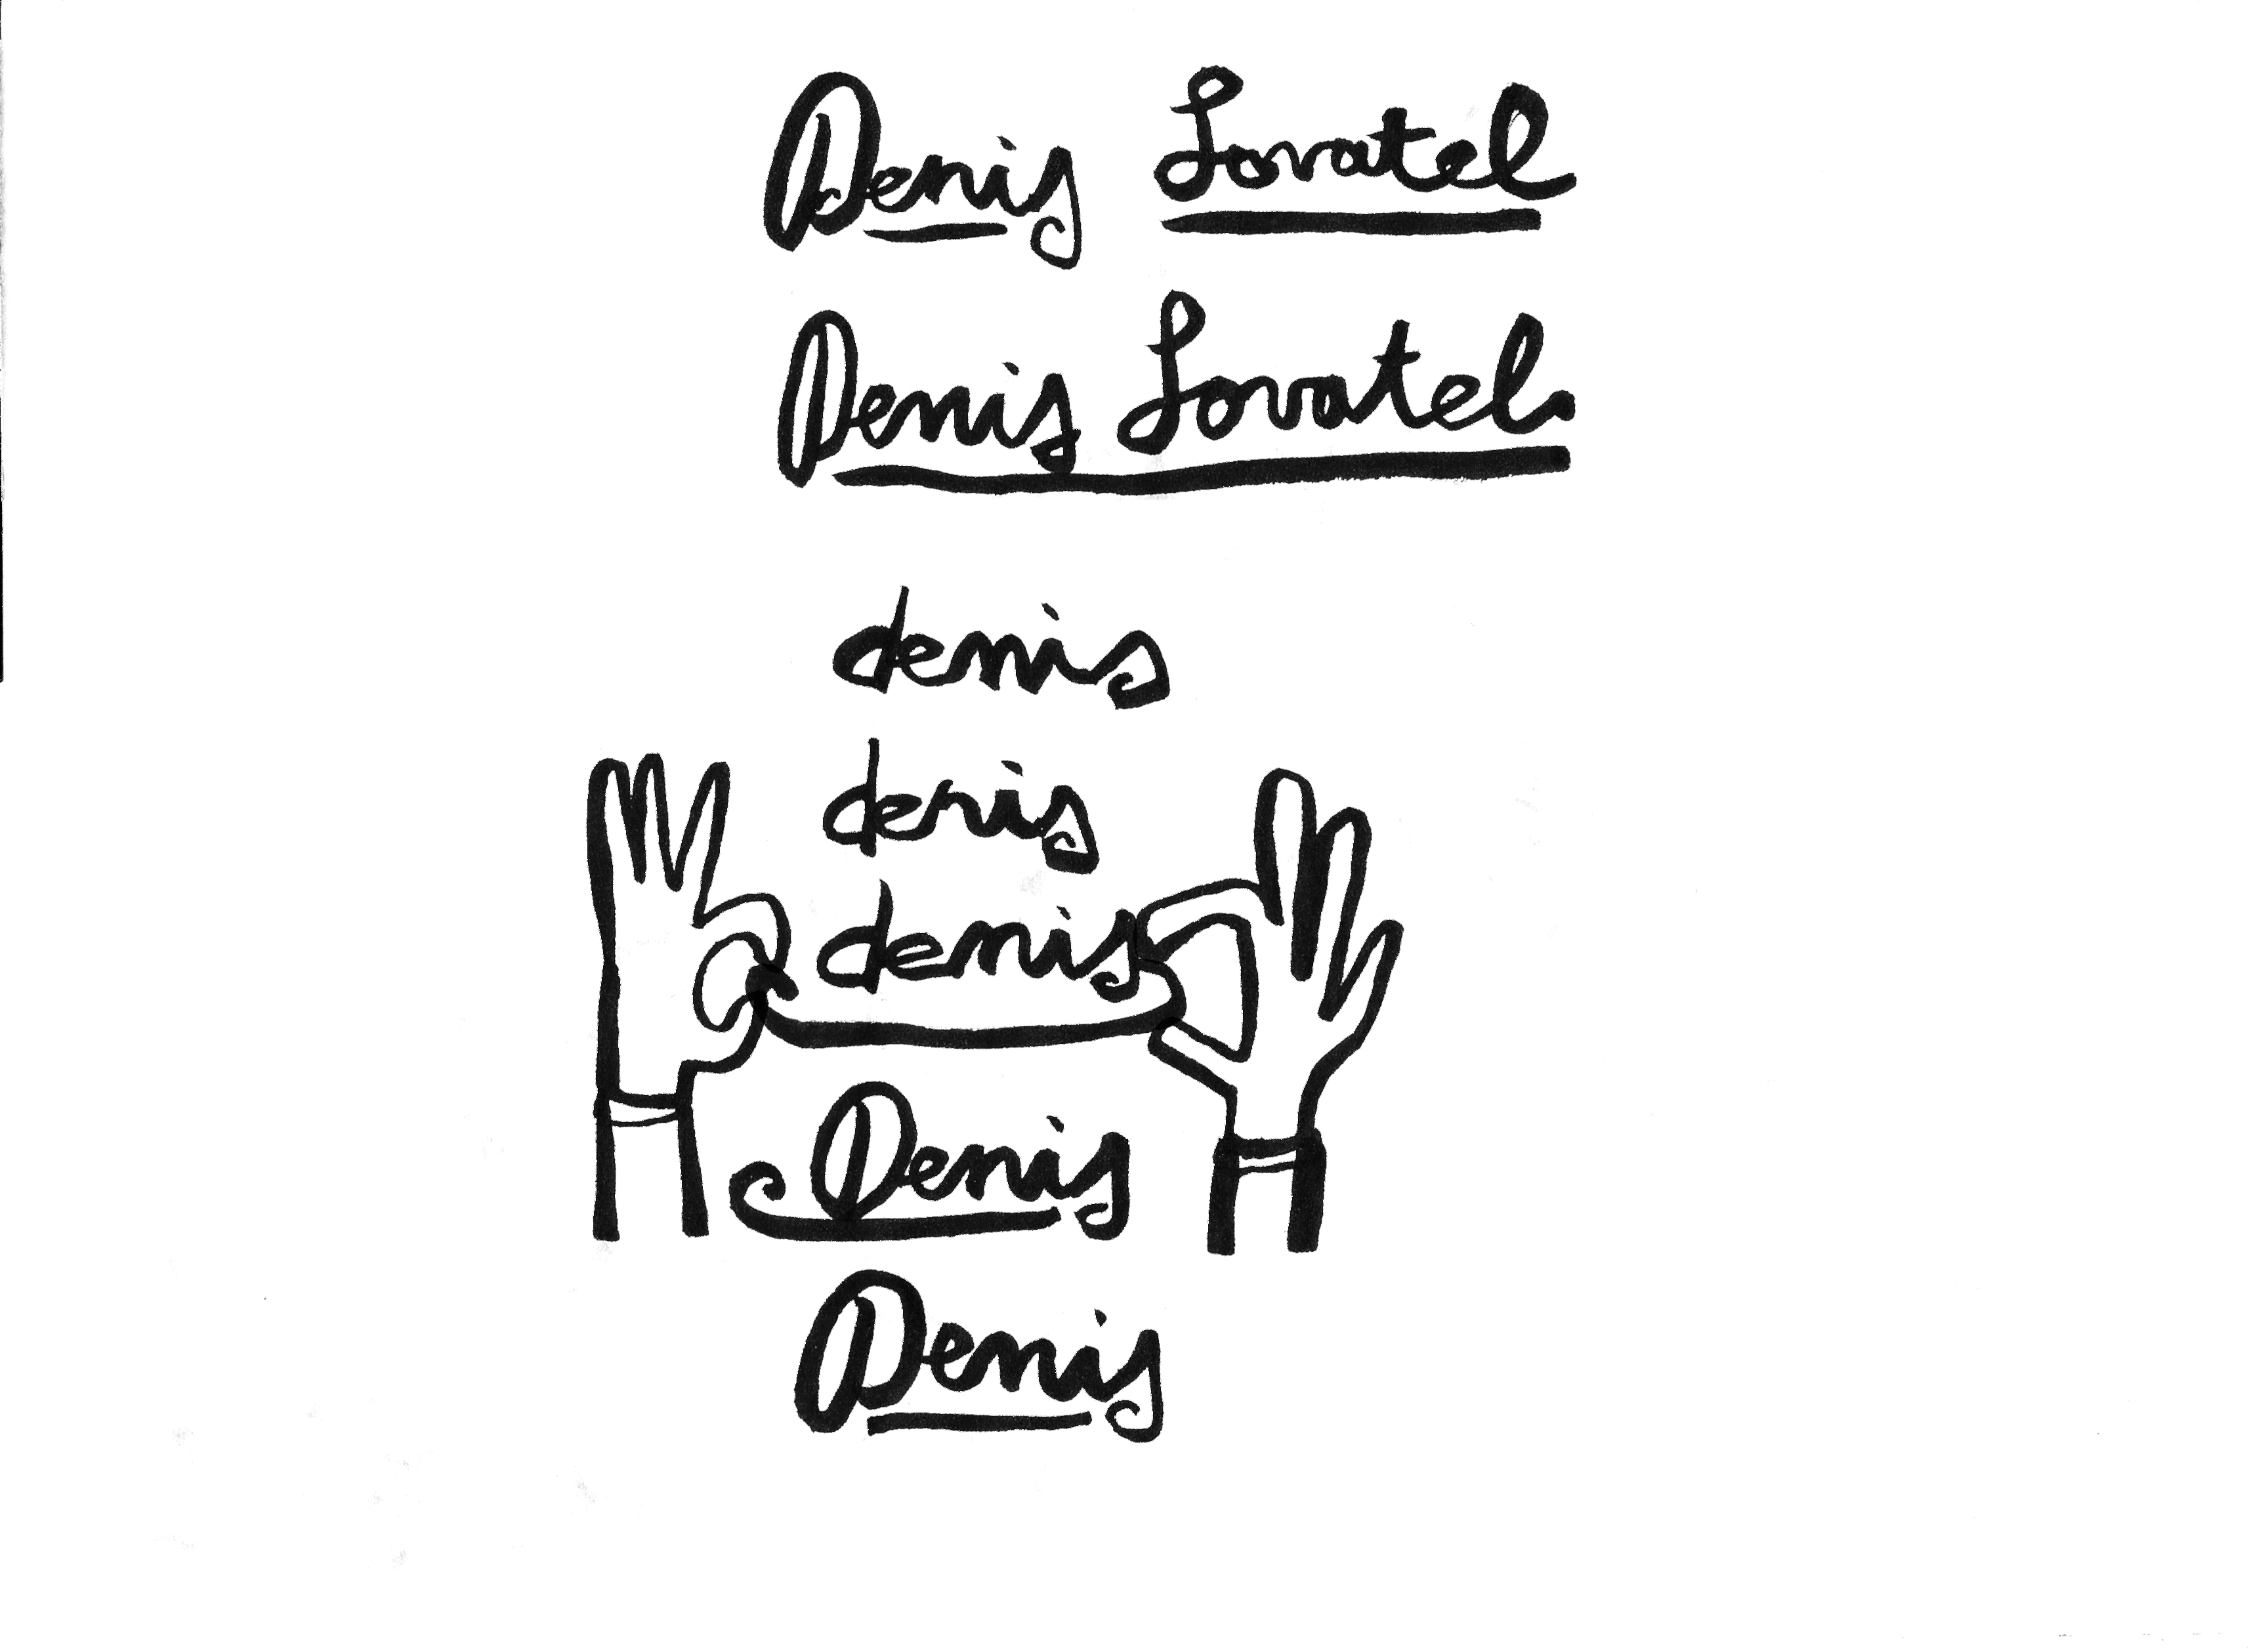 Denis Lovatel
Denis Lovatel.
denis
denis
denis
Denis
Denis